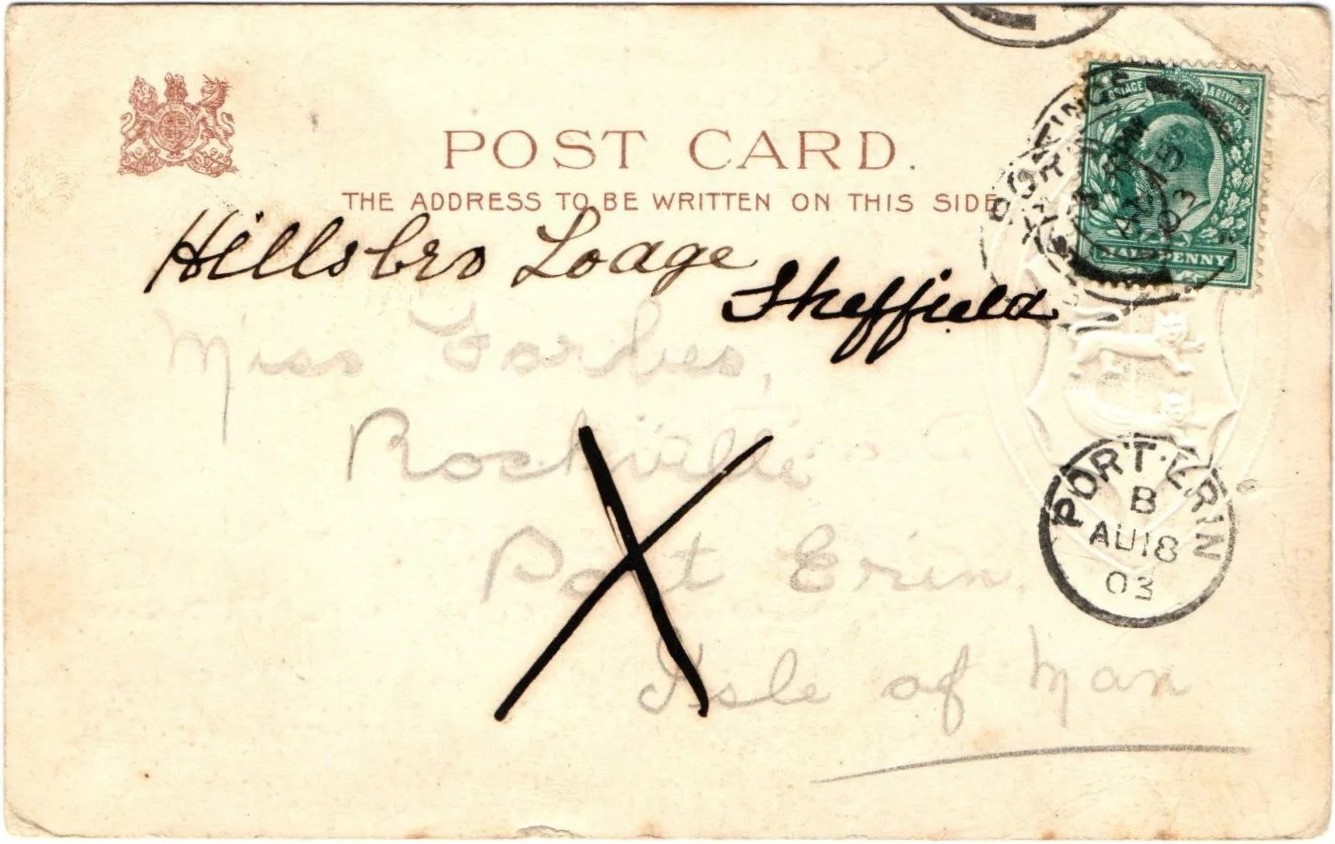 POST CARD.
THE ADDRESS TO BE WRITTEN ON THIS SIDE
POSTAGE & REVENUE
HALFPENNY
Hillsbro Lodge
Sheffield
Miss Forbes,
Rockville
Port Erin
Isle of Man
PORT·ERIN
B
AU18
03